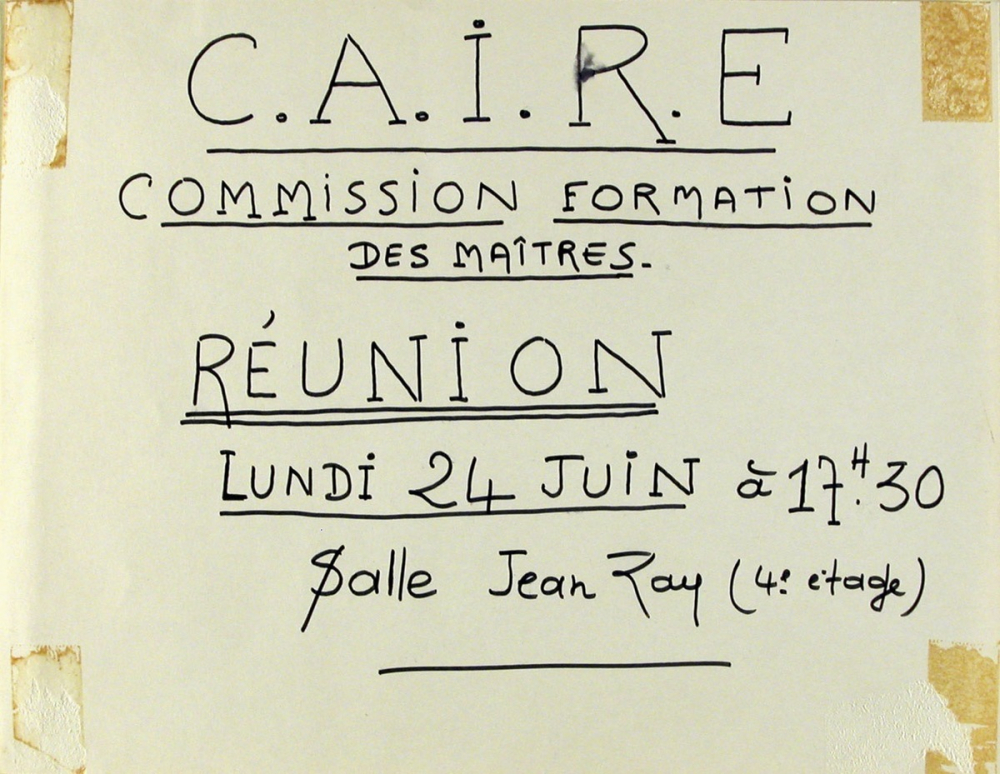 C.A.I.R.E
COMMISSION FORMATION
DES MAÎTRES.
RÉUNION
LUNDI 24 JUIN à 17H.30
Salle Jean Ray (4e étage)